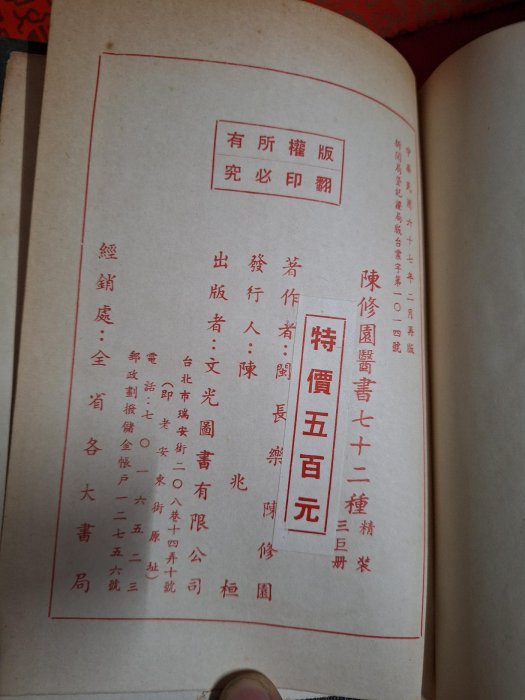 中華民國六十七年二月再版
新聞局登記證局版台業字第一〇一四號
陳修園醫書七十二種 精裝 三巨册
特價五百元
版權所有
翻印必究
著作者：閩長樂陳修園
發行人：陳兆桓
出版者：文光圖書有限公司
台北市瑞安街二〇八巷十四弄十號
（即老安東街原址）
電話：七〇一六五二三
郵政劃撥儲金帳戶一二七五六號
經銷處：全省各大書局